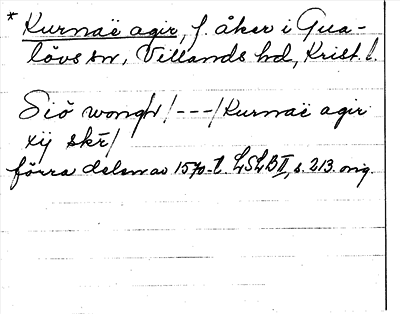 * Kurnaë agir, f. åker i Gua-
lövs sn, Villands hd, Krist. l.
Siö wongh /---/ Kurnaë agir
xij skr̄/
förra delen av 1570-t. LSLB II, s. 213. orig.